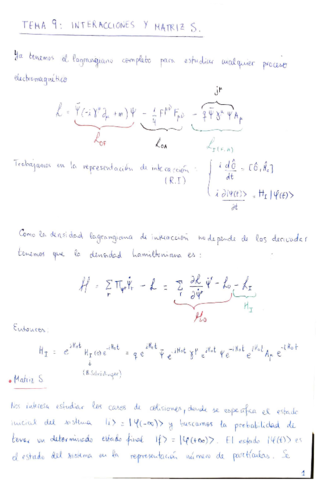 TEMA 9: INTERACCIONES Y MATRIZ S.
Ya tenemos el lagrangiano completo para estudiar cualquier proceso
electromagnético
j^μ
L = Ψ̄(-iγ^μ ∂_μ + m)Ψ - 1/4 F^{μν} F_{μν} - q Ψ̄ γ^μ Ψ A_μ
L_{0F} L_{0A}
Trabajamos en la representación de interacción :
(R.I)
i dÔ/dt = [Ô, Ĥ_0]
i ∂|Ψ(t)>/∂t = H_I |Ψ(t)>
Como la densidad lagrangiana de interacción no depende de las derivadas
tenemos que la densidad hamiltoniana es :
H = Σ_r Π_r Ψ̇_r - L = Σ_r ∂L/∂Ψ̇ Ψ̇ - L_0 - L_I
H_0
H_I
Entonces
H_I = e^{iH_0t} H_I e^{-iH_0t} = q e^{iH_0t} Ψ̄ e^{-iH_0t} γ^μ e^{iH_0t} Ψ e^{-iH_0t} e^{iH_0t} A_μ e^{-iH_0t}
• Matriz S
Nos interesa estudiar los casos de colisiones, donde se especifica el estado
inicial del sistema |i> = |Ψ(-∞)> y buscamos la probabilidad de
tener un determinado estado final |f> = |Ψ(+∞)>. El estado |Ψ(t)> es
el estado del sistema en la representación número de partículas. Se
1